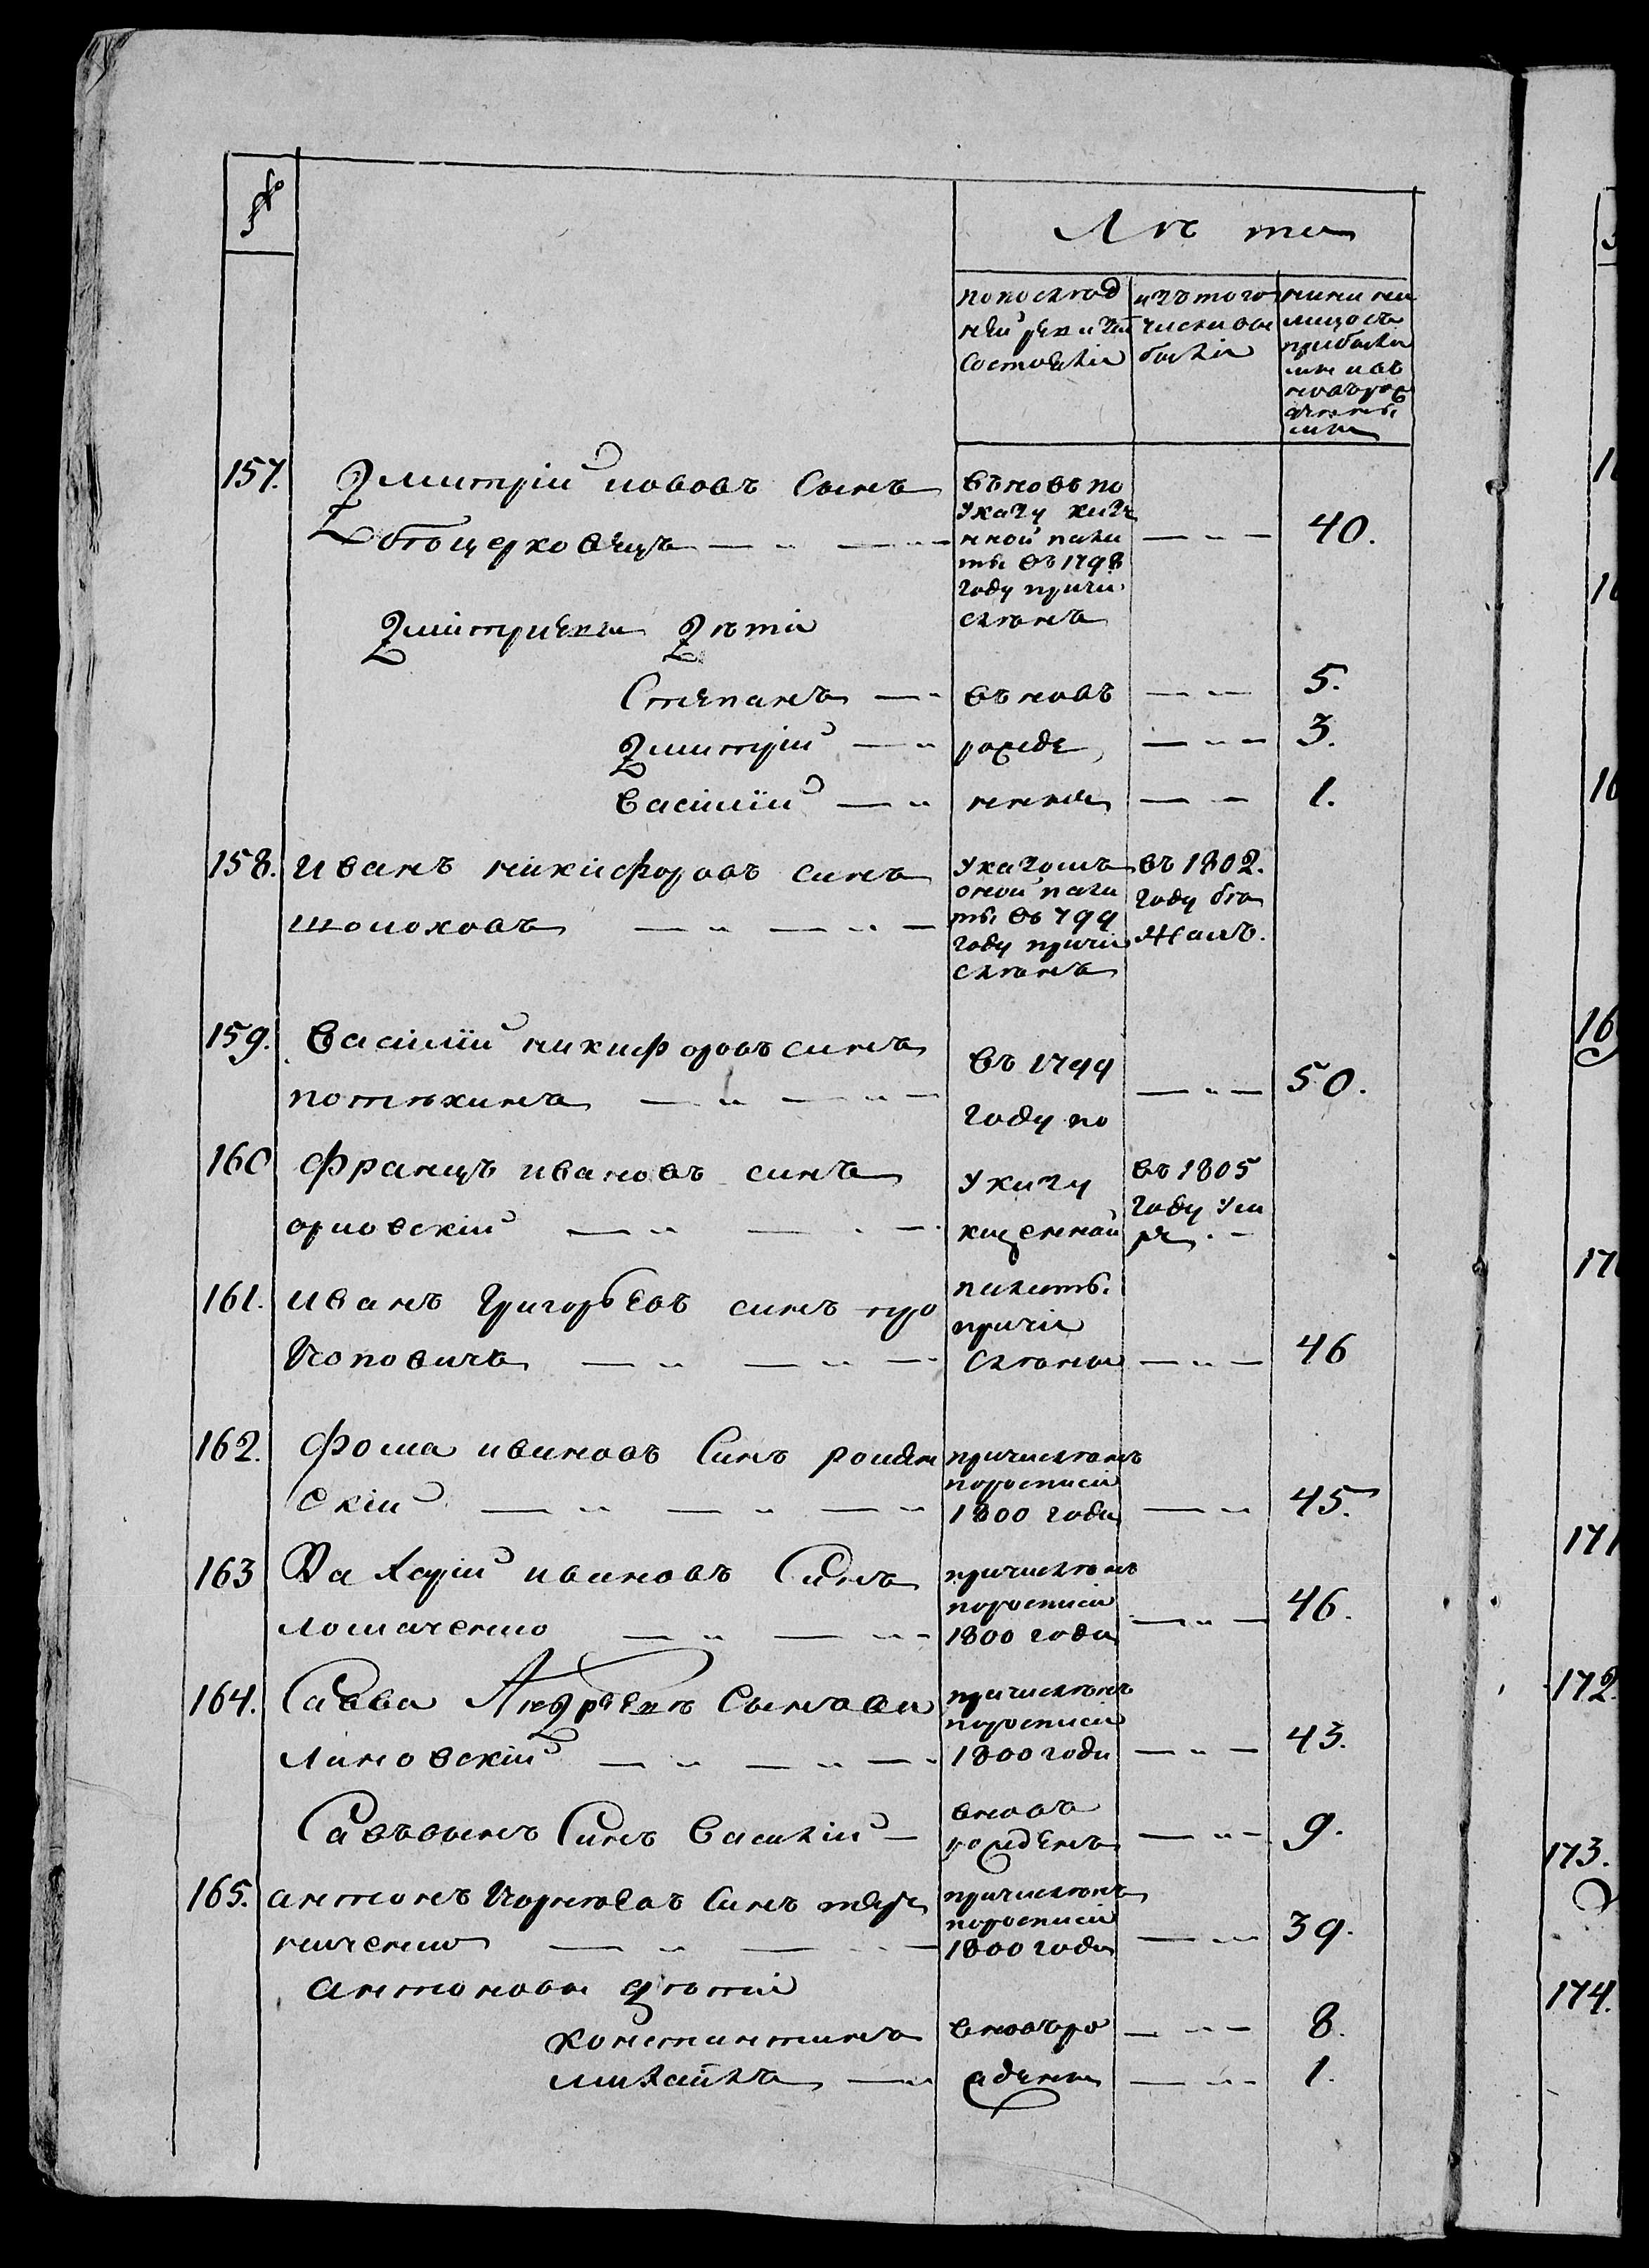 №
Лѣ та
попослѣд
ней ревизіи
состояли
изътого
числа вы
были
ныне на
лицо съ
прибылы
ми и въ
новь рож
денны
ми
157.
Дмитрій іововъ Сынъ
бѣлоцерковецъ
въновь по
Указу казе
нной пала
ты въ 1798
году причи
сленъ
40.
Дмитриевы Дѣти
Степанъ
въновь
5.
Дмитрій
рожде
3.
Василій
нные
1.
158.
иванъ никифоровъ синъ
шолоховъ
Указомъ
оной пала
ты въ 799
году причи
сленъ
въ 1802.
году бѣ
жалъ.
159.
Василій никифоровъ синъ
потѣхинъ
въ 1799
году по
50.
160
францъ ивановъ синъ
орловскій
Указу
казенной
въ 1805
году Уме
ръ.
161.
иванъ Григорьевъ синъ про
копо­вичъ
палаты
причи
слены
46
162.
фома ивановъ Синъ
скій
причисленъ
поросписи
1800 года
45.
163
Захарій ивановъ Синъ
причисленъ
поросписи
1800 года
46.
164.
Савва Андреевъ Сынъ
лановскій
причисленъ
поросписи
1800 года
43.
Савъвынъ Синъ Василій
вновь
рожденъ
9.
165.
антонъ Корнѣевъ Синъ
причисленъ
поросписи
1800 года
39.
антоновы дѣти
константинъ
вновьро
8.
михайла
ждены
1.
171
172.
173.
174.